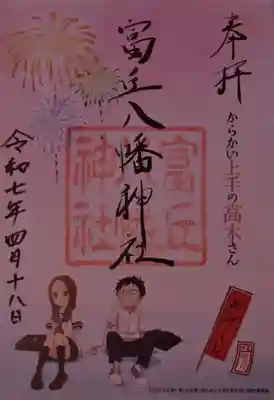 奉拝
からかい上手の高木さん
富丘八幡神社
富丘
神社
令和七年四月十八日